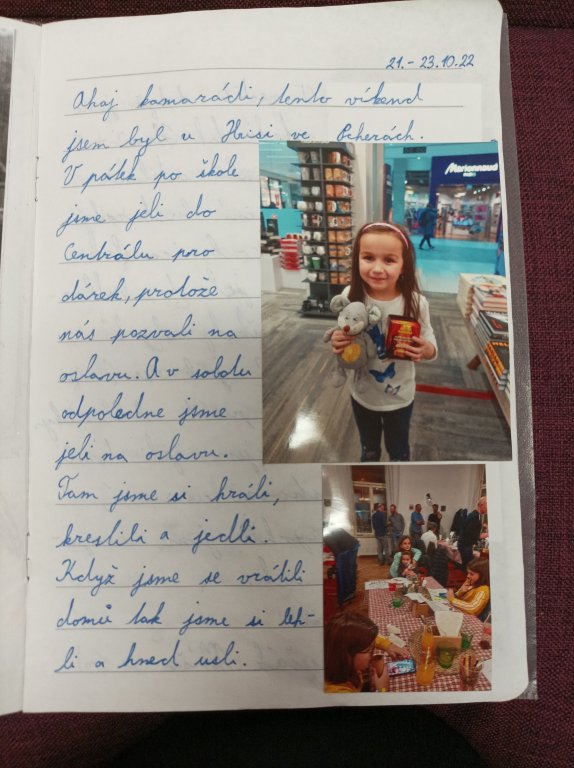 21. - 23.10.22
Ahoj kamarádi, tento víkend
jsem byl u Hrisi ve Pcherách.
V pátek po škole
jsme jeli do
Centrálu pro
dárek, protože
nás pozvali na
oslavu. A v sobotu
odpoledne jsme
jeli na oslavu.
Tam jsme si hráli,
kreslili a jedli.
Když jsme se vrátili
domů tak jsme si leh-
li a hned usli.
Marionnaud